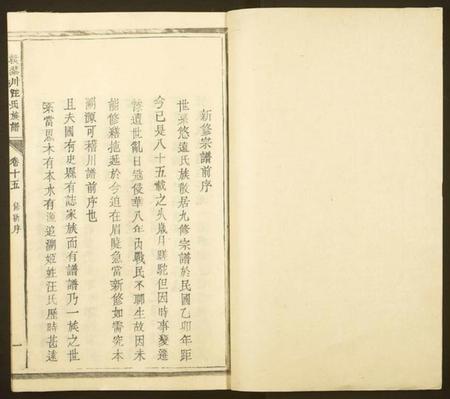 新修宗譜前序
世系悠遠氏族散居九修宗譜於民國乙卯年距
今已是八十五載之久歲月蹉跎但因時事變遷
慘遭世亂日寇侵華八年內戰民不聊生故因未
能修耤拖延於今迫在眉睫急當新修如需究本
溯源可稽川譜前序也
且夫國有史縣有誌家族而有譜譜乃一族之世
系當思木有本水有源追溯姬姓汪氏歷時甚遠
川汪氏族譜
卷十五
序
一